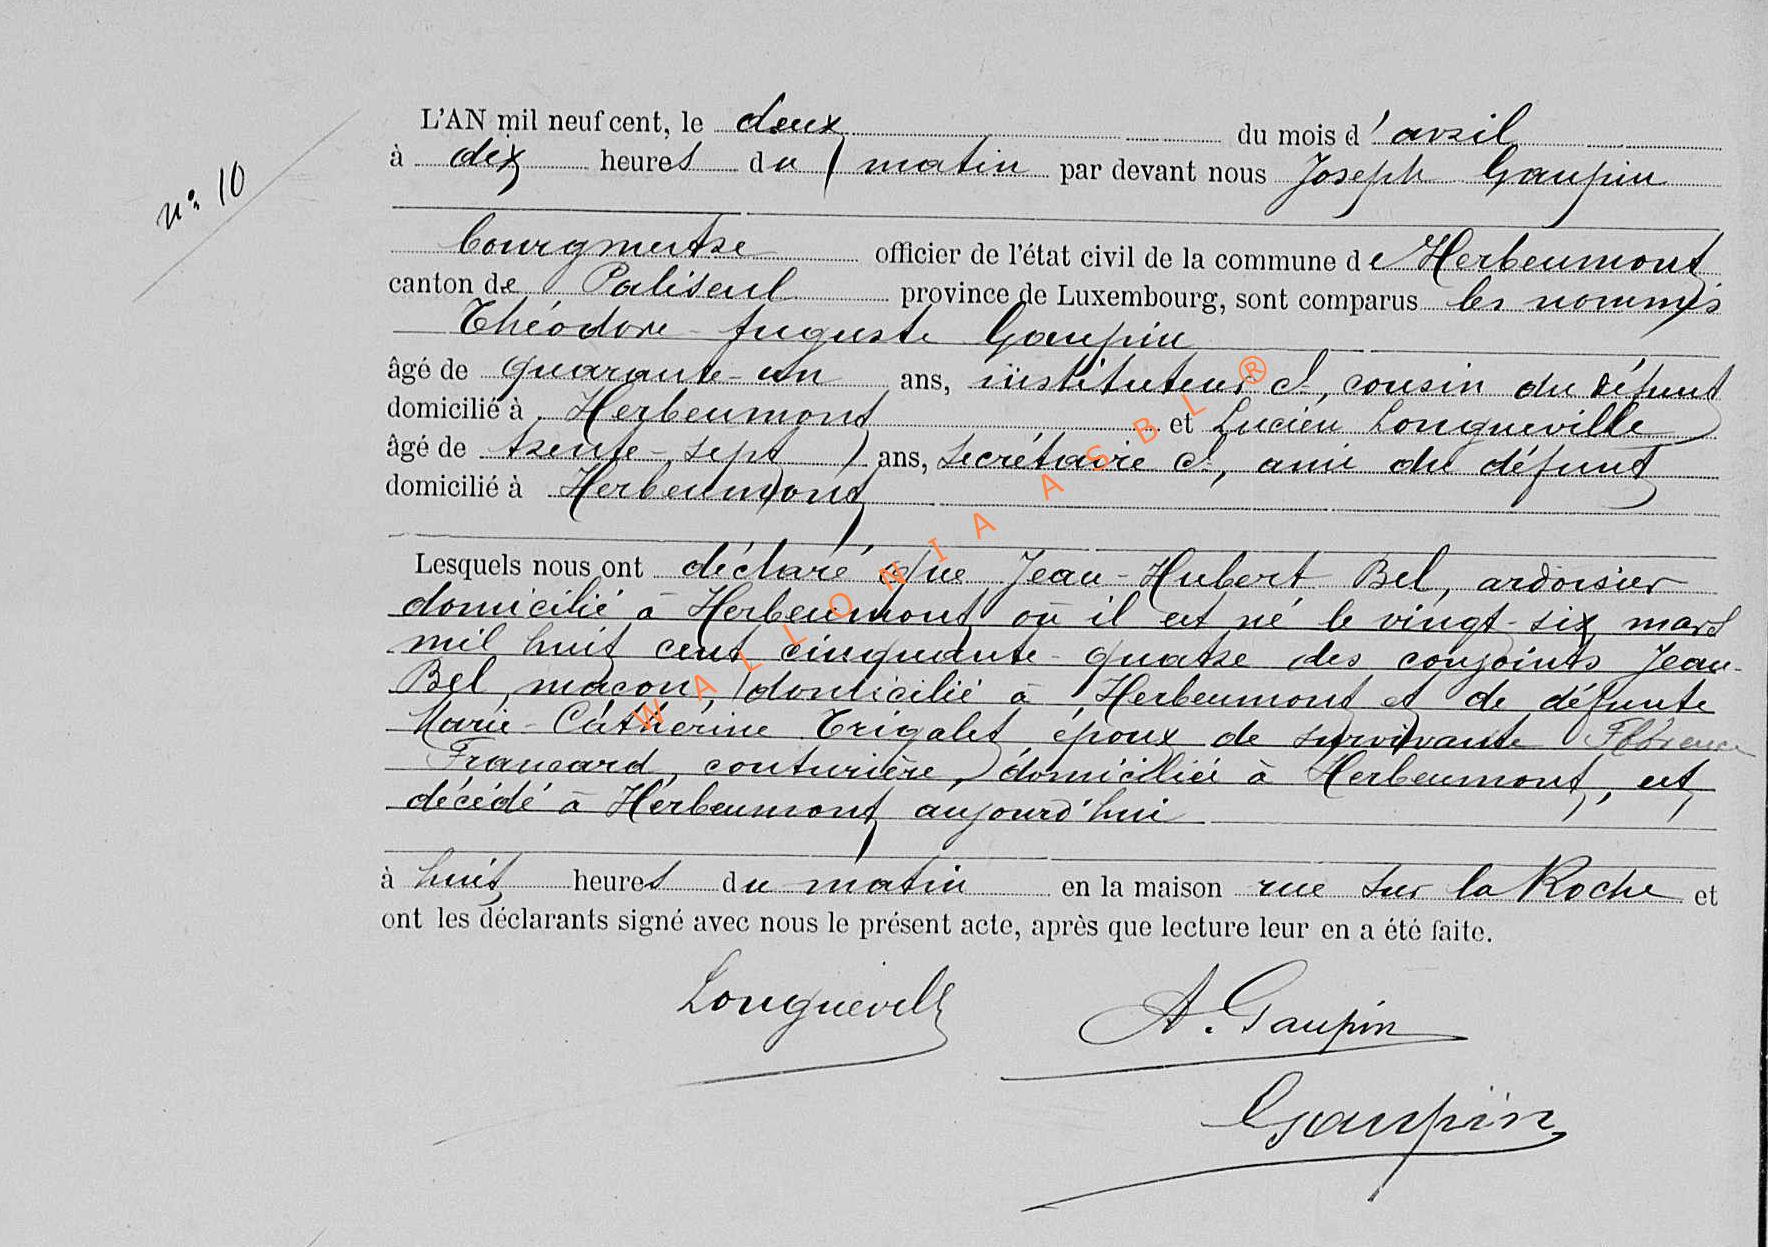 n° 10
L'AN mil neuf cent, le deux du mois d'avril
à dix heures du matin par devant nous Joseph Gaupin
bourgmestre officier de l'état civil de la commune de Herbeumont
canton de Paliseul province de Luxembourg, sont comparus les nommés
Théodore-Auguste Gaupin
âgé de quarante-un ans, instituteur cl, cousin du défunt
domicilié à Herbeumont et Lucien Longueville
âgé de trente-sept ans, secrétaire cl, ami du défunt
domicilié à Herbeumont
Lesquels nous ont déclaré que Jean-Hubert Bel, ardoisier
domicilié à Herbeumont où il est né le vingt-six mars
mil huit cent cinquante-quatre des conjoints Jean-
Bel, maçon, domicilié à Herbeumont et de défunte
Marie-Catherine Trigalet époux de survivante Florence
Francard, couturière, domiciliée à Herbeumont, est
décédé à Herbeumont aujourd'hui
à huit heures du matin en la maison rue sur la Roche et
ont les déclarants signé avec nous le présent acte, après que lecture leur en a été faite.
Longueville
A. Gaupin
Gaupin
WALLONIA ASBL ®